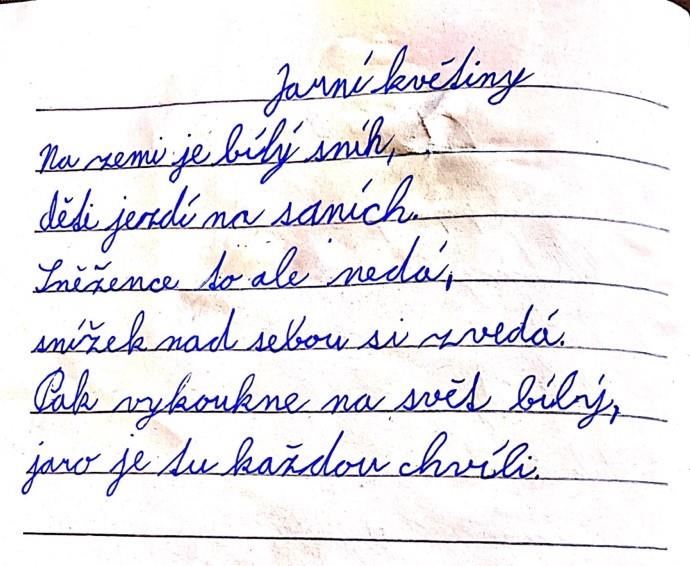 Jarní květiny
Na zemi je bílý sníh,
děti jezdí na saních.
Sněžence to ale nedá,
snížek nad sebou si zvedá.
Pak vykoukne na svět bílý,
jaro je tu každou chvíli.